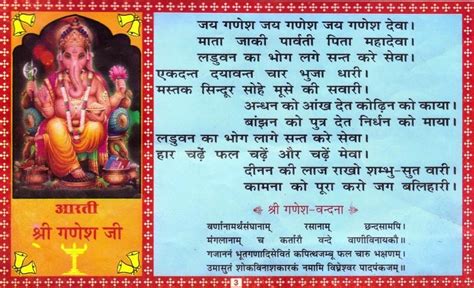 आरती
श्री गणेश जी
जय गणेश जय गणेश जय गणेश देवा।
माता जाकी पार्वती पिता महादेवा।
लडुवन का भोग लगे सन्त करे सेवा।
एकदन्त दयावन्त चार भुजा धारी।
मस्तक सिन्दूर सोहे मूसे की सवारी।
अन्धन को आंख देत कोढ़िन को काया।
बांझन को पुत्र देत निर्धन को माया।
लडुवन का भोग लगे सन्त करे सेवा।
हार चढ़ें फल चढ़ें और चढ़ें मेवा।
दीनन की लाज राखो शम्भु-सुत वारी।
कामना को पूरा करो जग बलिहारी।
श्री गणेश-वन्दना
वर्णानामर्थसंघानाम् रसानाम् छन्दसामपि।
मंगलानाम् च कर्तारौ वन्दे वाणीविनायकौ॥
गजाननं भूतगणादिसेवितं कपित्थजम्बू फल चारु भक्षणम्।
उमासुतं शोकविनाशकारकं नमामि विघ्नेश्वर पादपंकजम्॥
3